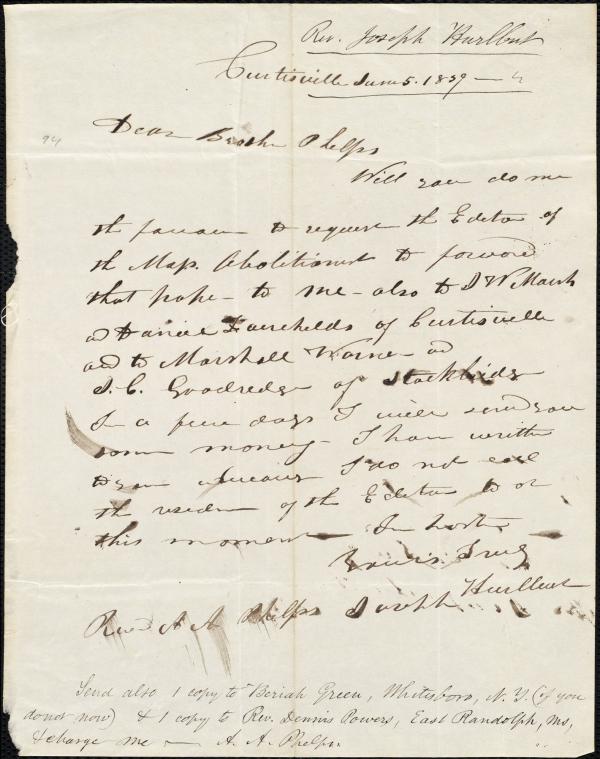 Rev. Joseph Hurlbut
Curtisville June 5. 1839
94
Dear Brother Phelps
Will you do me
the favour to request the Editor of
the Mass. Abolitionist to forward
that paper to me - also to J W Marsh
Daniel Fairchilds of Curtisville
and to Marshall Warner and
J. C. Goodredge of Stockbridge
In a few days I will send you
some money - I have written
to you because I do not
the of the Editor
this moment In haste
Yours Truly
Joseph Hurlbut
Revd A A Phelps
Send also 1 copy to Beriah Green, Whitesboro, N.Y. (if you
do not now) & 1 copy to Rev. Dennis Powers, East Randolph, Ms,
& charge me — A. A. Phelps.